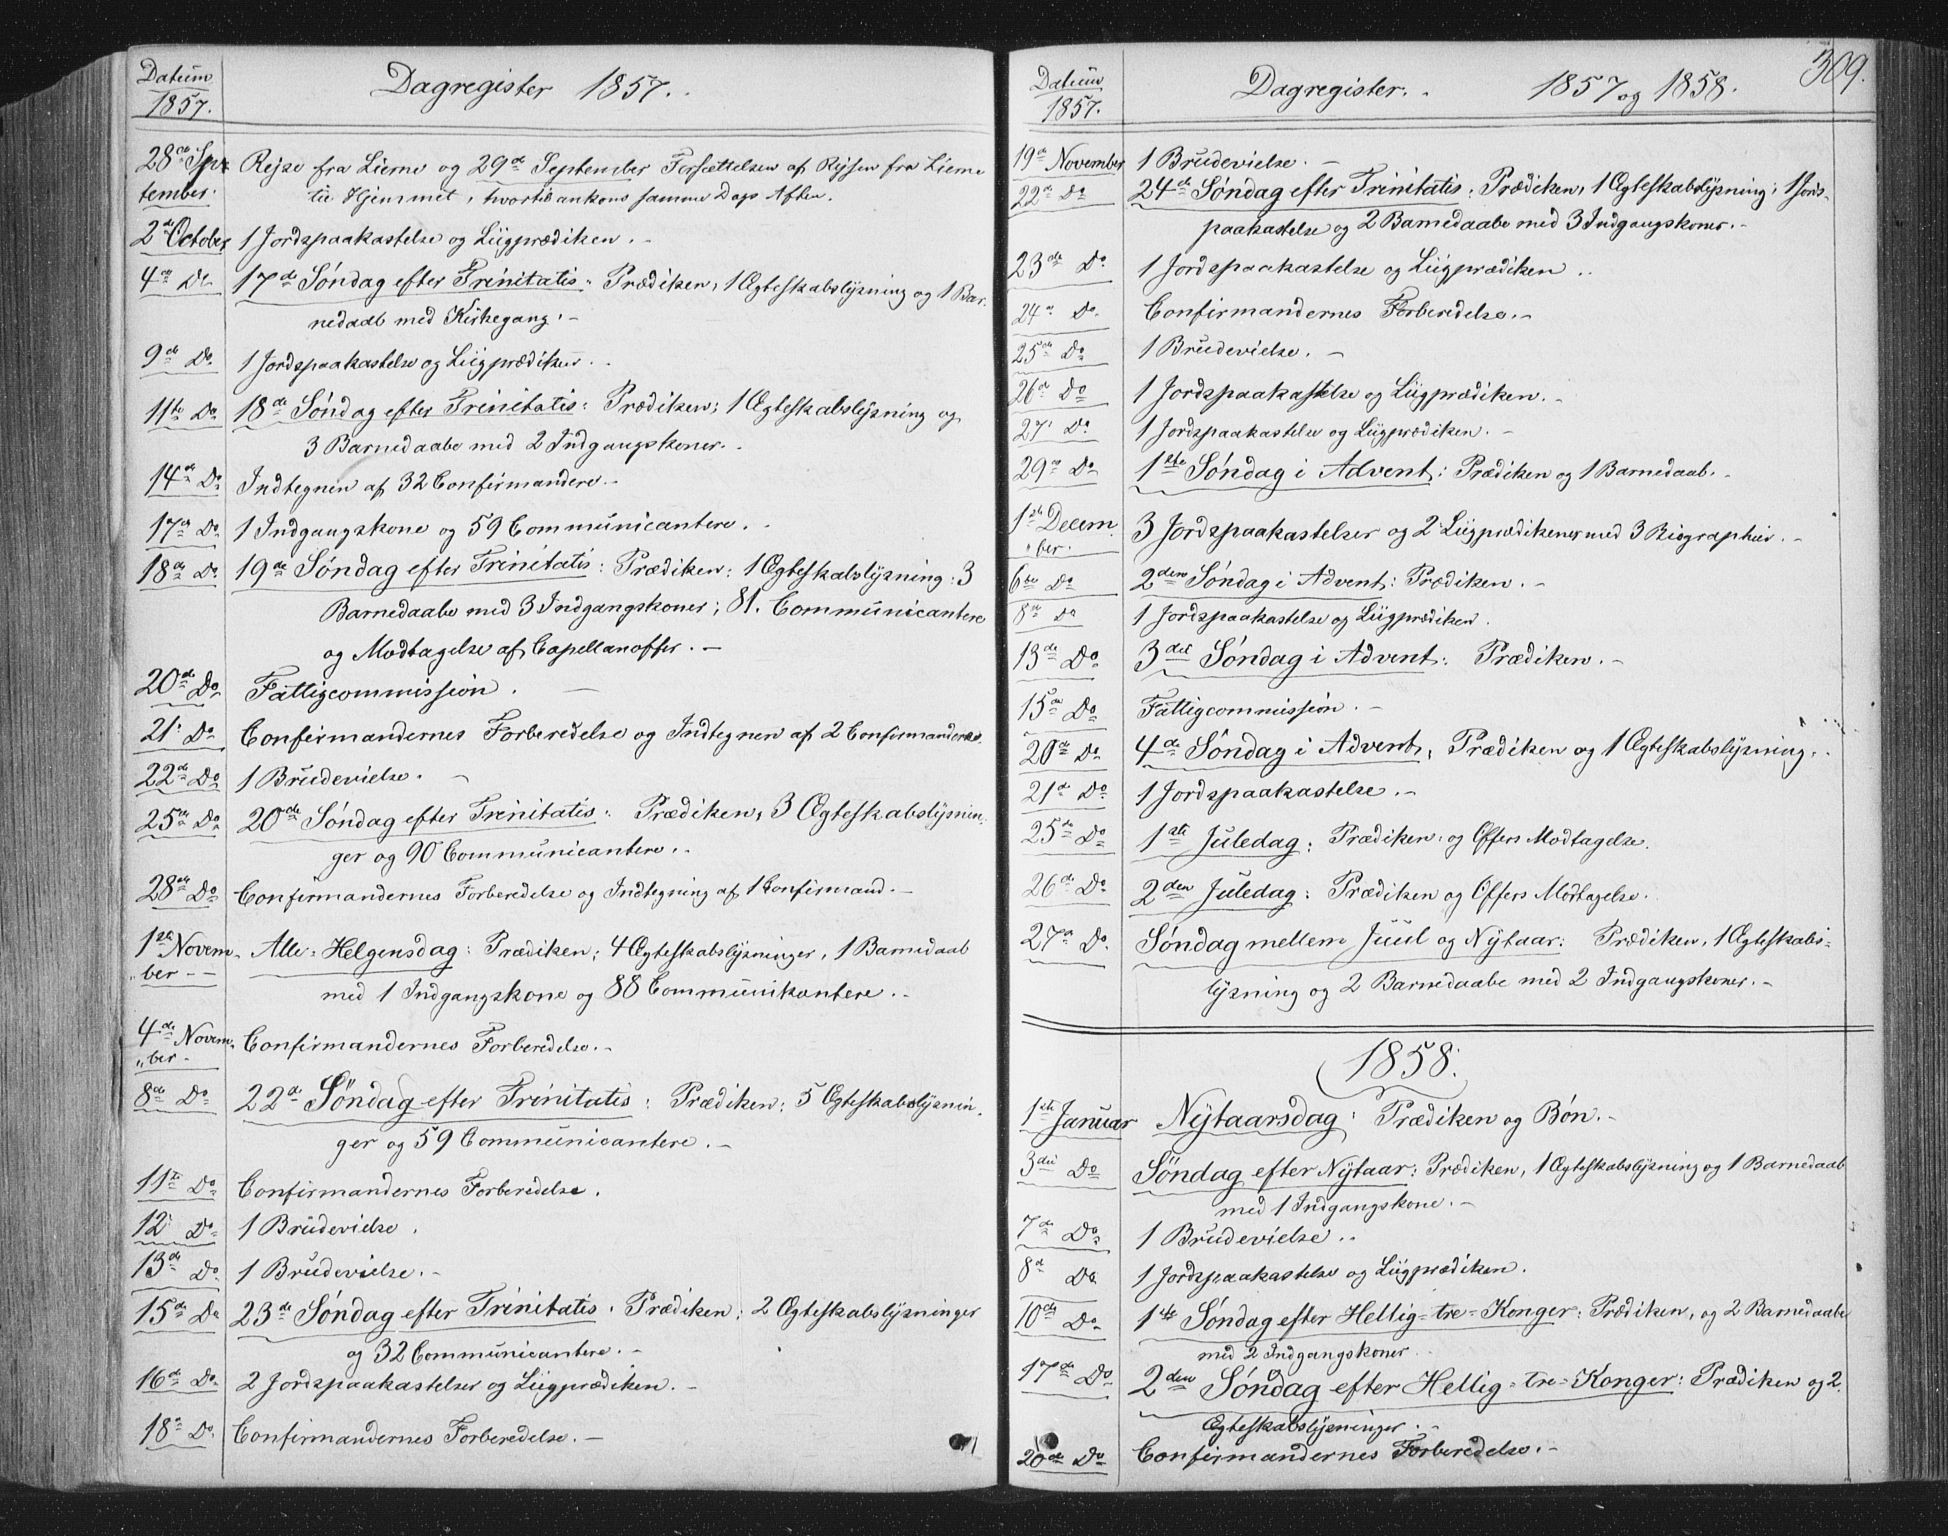 Datum
1857.
Dagregister 1857.
28de Sep-
tember.
Rejse fra Lierne og 29de September Forsættelsen af Rejsen fra Lierne
til Hjemmet, hvortil ankoms samme Dags Aften.
2de October
1 Jordspaakastelse og Liigprædiken. -
4de Do
17de Søndag efter Trinitatis: Prædiken, 1 Ægteskabslysning og 1 Bar-
nedaab med Kirkegang. -
9de Do
1 Jordspaakastelse og Liigprædiken. -
11te Do
18de Søndag efter Trinitatis: Prædiken; 1 Ægteskabslysning og
3 Barnedaabe med 2 Indgangskoner. -
14de Do
Indtegnen af 32 Confirmandere. -
17de Do
1 Indgangskone og 59 Communicantere. -
18de Do
19de Søndag efter Trinitatis: Prædiken: 1 Ægteskabslysning: 3
Barnedaabe med 3 Indgangskoner; 81. Communicantere
og Modtagelse af Capellanoffer. -
20de Do
Fattigcommission. -
21. Do
Confirmandernes Forberedelse og Indtegnen af 2 Confirmandere.
22de Do
1 Brudevielse. -
25de Do
20de Søndag efter Trinitatis: Prædiken, 3 Ægteskabslysnin-
ger og 90 Communicantere. -
28de Do
Confirmandernes Forberedelse og Indtegning af 1 Confirmand. -
1ste Novem-
ber -
Alle-Helgensdag: Prædiken; 4 Ægteskabslysninger, 1 Barnedaab
med 1 Indgangskone og 88 Communikantere. -
4de Novem-
ber -
Confirmandernes Forberedelse. -
8de Do
22de Søndag efter Trinitatis: Prædiken: 5 Ægteskabslysnin-
ger og 59 Communicantere. -
11te Do
Confirmandernes Forberedelse.
12 Do
1 Brudevielse.
13de Do
1 Brudevielse. -
15de Do
23de Søndag efter Trinitatis: Prædiken: 2 Ægteskabslysninger
og 32 Communicantere. -
16de Do
2 Jordspaakastelser og Liigprædiken. -
18de Do
Confirmandernes Forberedelse. -
309.
Datum
1857.
Dagregister. 1857 og 1858.
19de November
1 Brudevielse. -
22de Do
24de Søndag efter Trinitatis: Prædiken, 1 Ægteskabslysning; 1 Jords-
paakastelse og 2 Barnedaabe med 3 Indgangskoner. -
23de Do
1 Jordspaakastelse og Liigprædiken. -
24de Do
Confirmandernes Forberedelse. -
25de Do
1 Brudevielse. -
26de Do
1 Jordspaakastelse og Liigprædiken. -
27. Do
1 Jordspaakastelse og Liigprædiken. -
29de Do
1ste Søndag i Advent: Prædiken og 1 Barnedaab. -
1ste Decem-
ber.
3 Jordspaakastelser og 2 Liigprædikener med 3 Biographier. -
6te Do
2den Søndag i Advent: Prædiken. -
8de Do
1 Jordspaakastelse og Liigprædiken.
13de Do
3die Søndag i Advent: Prædiken. -
15de Do
Fattigcommission. -
20de Do
4de Søndag i Advent: Prædiken og 1 Ægteskabslysning. -
21de Do
1 Jordspaakastelse. -
25de Do
1ste Juledag: Prædiken og Offers Modtagelse.
26de Do
2den Juledag: Prædiken og Offers Modtagelse.
27de Do
Søndag mellem Juul og Nytaar: Prædiken, 1 Ægteskabs-
lysning og 2 Barnedaabe med 2 Indgangskoner. -
1858.
1ste Januar
Nytaarsdag: Prædiken og Bøn. -
3die Do
Søndag efter Nytaar: Prædiken, 1 Ægteskabslysning og 1 Barnedaab
med 1 Indgangskone. -
7de Do
1 Brudevielse. -
8de Do
1 Jordspaakastelse og Liigprædiken.
10de Do
1ste Søndag efter Hellig-tre-Konger: Prædiken, og 2 Barnedaabe
med 2 Indgangskoner.
17de Do
2den Søndag efter Hellig-tre-Konger: Prædiken og 2
Ægteskabslysninger. -
20de Do
Confirmandernes Forberedelse. -